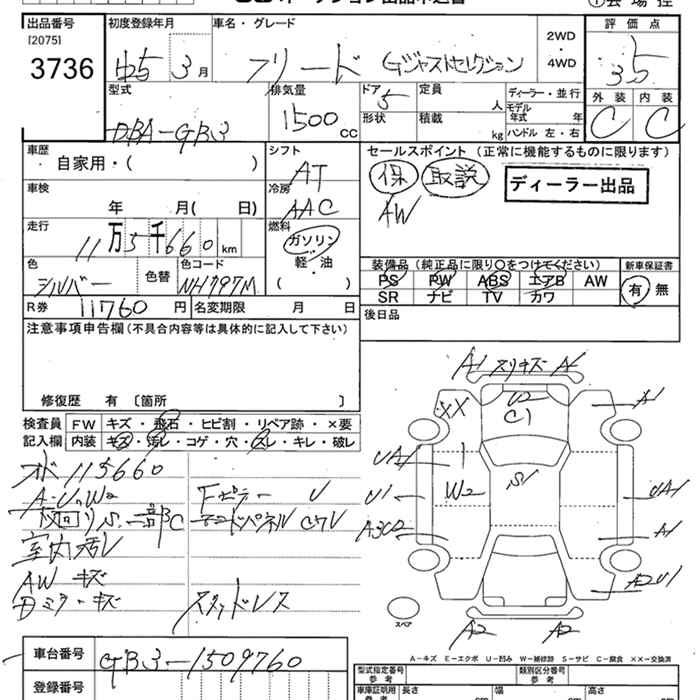 出品番号
[2075]
3736
初度登録年月
3月
車名・グレード
フリード Gジャストセレクション
2WD
・
4WD
評価点
3.5
外装 内装
C C
型式
DBA-GB3
排気量
1500cc
ドア
5
形状
定員
人
積載
kg
ディーラー・並行
モデル
年式 年
ハンドル 左・右
車歴
自家用・( )
シフト
AT
セールスポイント (正常に機能するものに限ります)
保 取説
AW
ディーラー出品
車検
年 月( 日)
冷房
AAC
走行
11万5千660km
燃料
ガソリン
軽・油
( )
色
シルバー
色替
色コード
NH797M
装備品 (純正品に限り○をつけてください)
PS PW ABS エアB AW
SR ナビ TV カワ
新車保証書
有 無
R券
11760円
名変期限 月 日
後日品
注意事項申告欄(不具合内容等は具体的に記入して下さい)
修復歴 有 〔箇所 〕
検査員
記入欄
FW キズ・飛石・ヒビ割・リペア跡・×要
内装 キズ・汚レ・コゲ・穴・スレ・キレ・破レ
115660
A・U,W2
室内汚レ
AW キズ
Dミラーキズ
U
エンドパネル
スタッドレス
A1 スリキズ A1
XX
U2
C1
A1
UA1
1
S1
U1
W2
UA1
A1
A2U1
A2 A2
スペア
A-キズ E-エクボ U-凹み W-補修跡 S-サビ C-腐食 ××-交換済
車台番号
GB3-1509760
登録番号
型式指定番号
参考
類別区分番号
参考
車庫証明用
参考
長さ
cm
幅
cm
高さ
cm